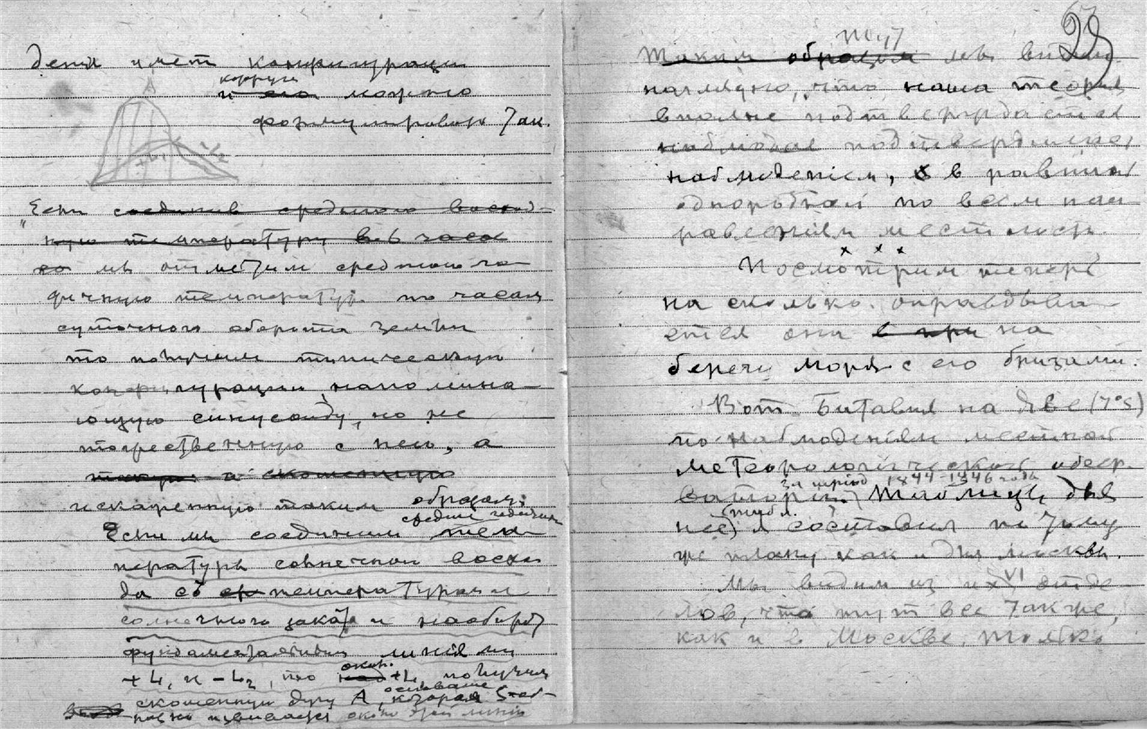 деня имет конфигурацию
которую
и его можно
формулировать так.
А
"Если соединив среднюю восход-
ную температуру в 6 часов
со мы отметим среднюю го-
дичную температур. по часам
суточного оборота земли
то получим типическую
конфигурацию напомина-
ющую синусоиду, но не
тождественную с нею, а
искаженную таким образом:
средния годичныя
Если мы соединим тем
пературы солнечной восхо
да со температурами
солнечного заката и наоборот
фундаментальными линиями
+L, и -L₂, то +L, получим
скошенную дугу А, которая
основание
около этой линии
23
Таким образом мы видим
наглядно, что наша теория
вполне подтверждается
подтверждается
наблюдением, в равнин
однородной по всем нап
равлениям местности.
x x x
Посмотрим теперь
на сколько оправдыва
ется она в при на
берегу моря с его бризами.
Вот Батавия на Яве (7°S)
по наблюдениям местной
метеорологической обсер
за период 1844-1846 года
ватории. Таблицу для
нее (табл. ) я составил по тому
же плану как и для Москвы.
Мы видим из VI отде
лов, что тут все так же,
как и в Москве, только